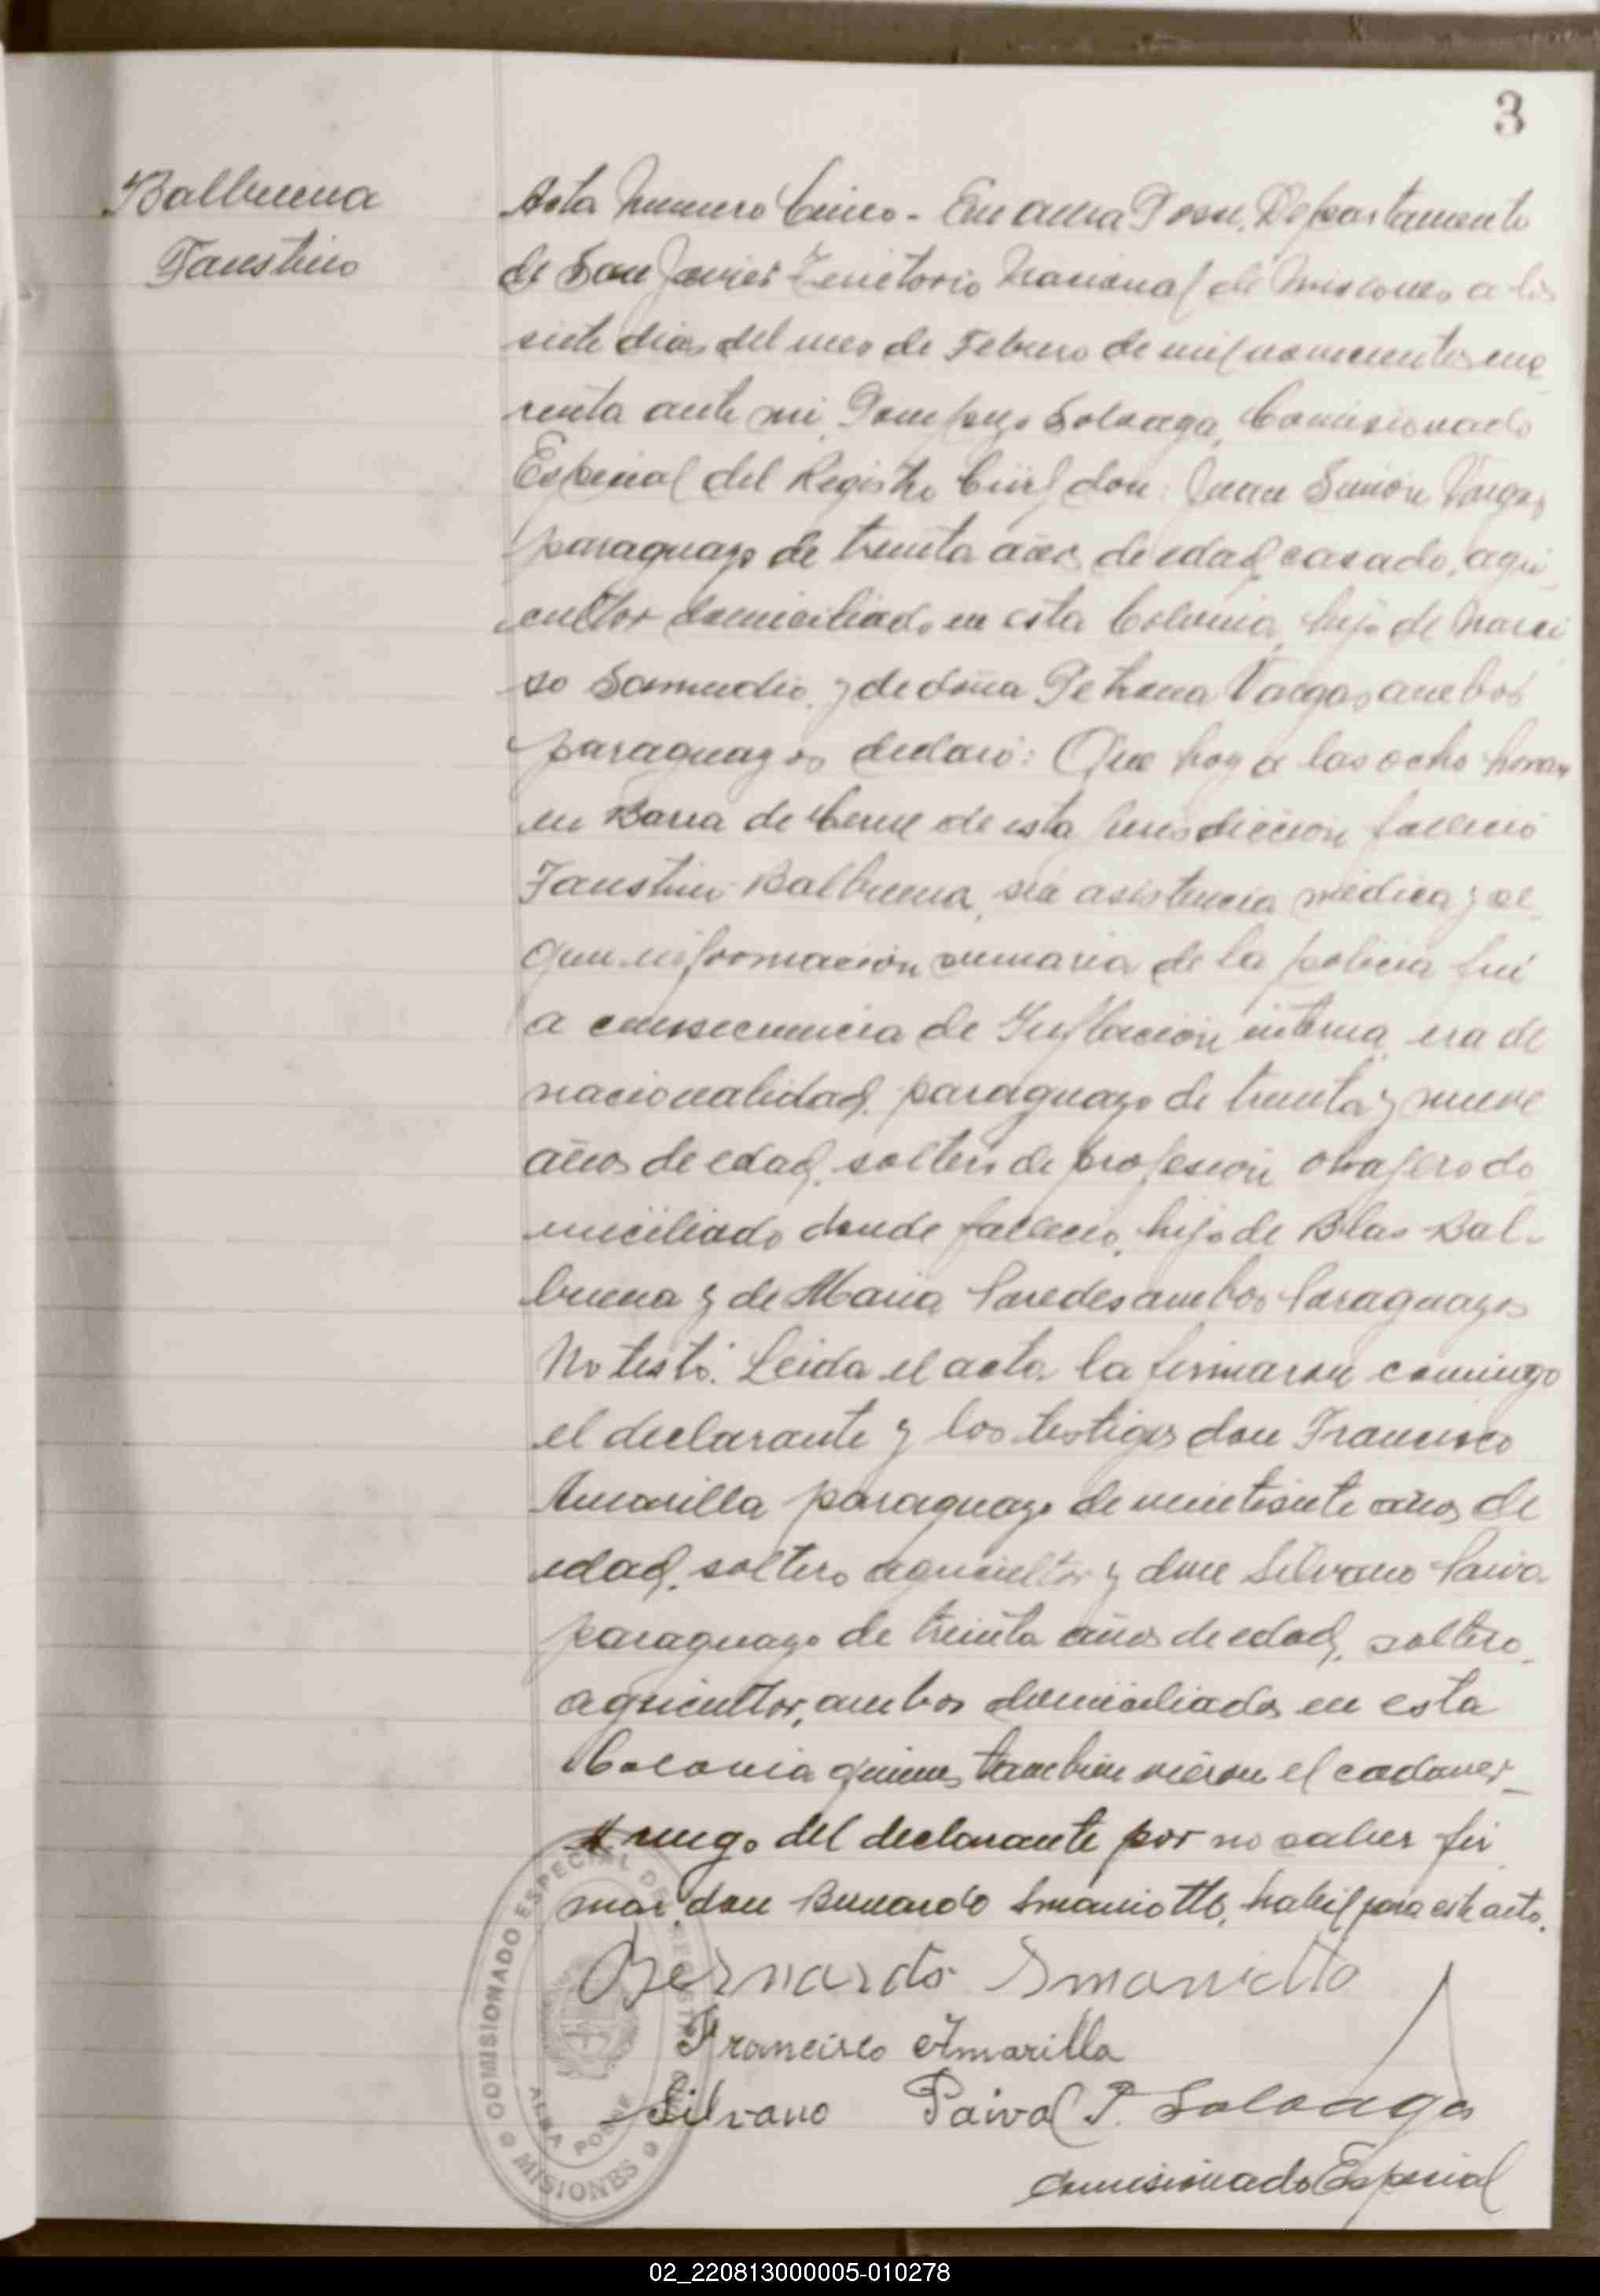 3
Balbuena
Faustino
Acta Numero Cinco - En Alba Posse, Departamento
de San Javier Territorio Nacional de Misiones a los
siete dias del mes de Febrero de mil novecientos cua
renta ante mi, Pompeyo Soloaga, Comisionado
Especial del Registro Civil don: Juan Simón Vargas
paraguayo de treinta años de edad, casado, agri
cultor domiciliado en esta Colonia, hijo de Narci
so Samudio, y de doña Petrona Vargas ambos
paraguayos declaró: Que hoy a las ocho horas
en Barra de de esta Jurisdicción falleció
Faustino Balbuena, sin asistencia médica y se
gun información sumaria de la policia fué
a consecuencia de interna era de
nacionalidad paraguayo de treinta y nueve
años de edad, soltero de profesión obrajero do
miciliado donde falleció, hijo de Blas Bal-
buena y de Maria Paredes ambos Paraguayos
No testó. Leida el acta la firmaron conmigo
el declarante y los testigos don Francisco
Amarilla paraguayo de veintisiete años de
edad, soltero agricultor y don Silvano Paiva
paraguayo de treinta años de edad, soltero,
agricultor, ambos domiciliados en esta
Colonia quienes tambien vieron el cadaver -
A ruego del declarante por no saber fir
mar don Bernardo Smaniotto, habil para este acto.
Bernardo Smaniotto
Francisco Amarilla
Silvano Paiva P. Soloaga
Comisionado Especial
COMISIONADO ESPECIAL DE REGISTRO
ALBA POSSE
MISIONES
02_220813000005-010278